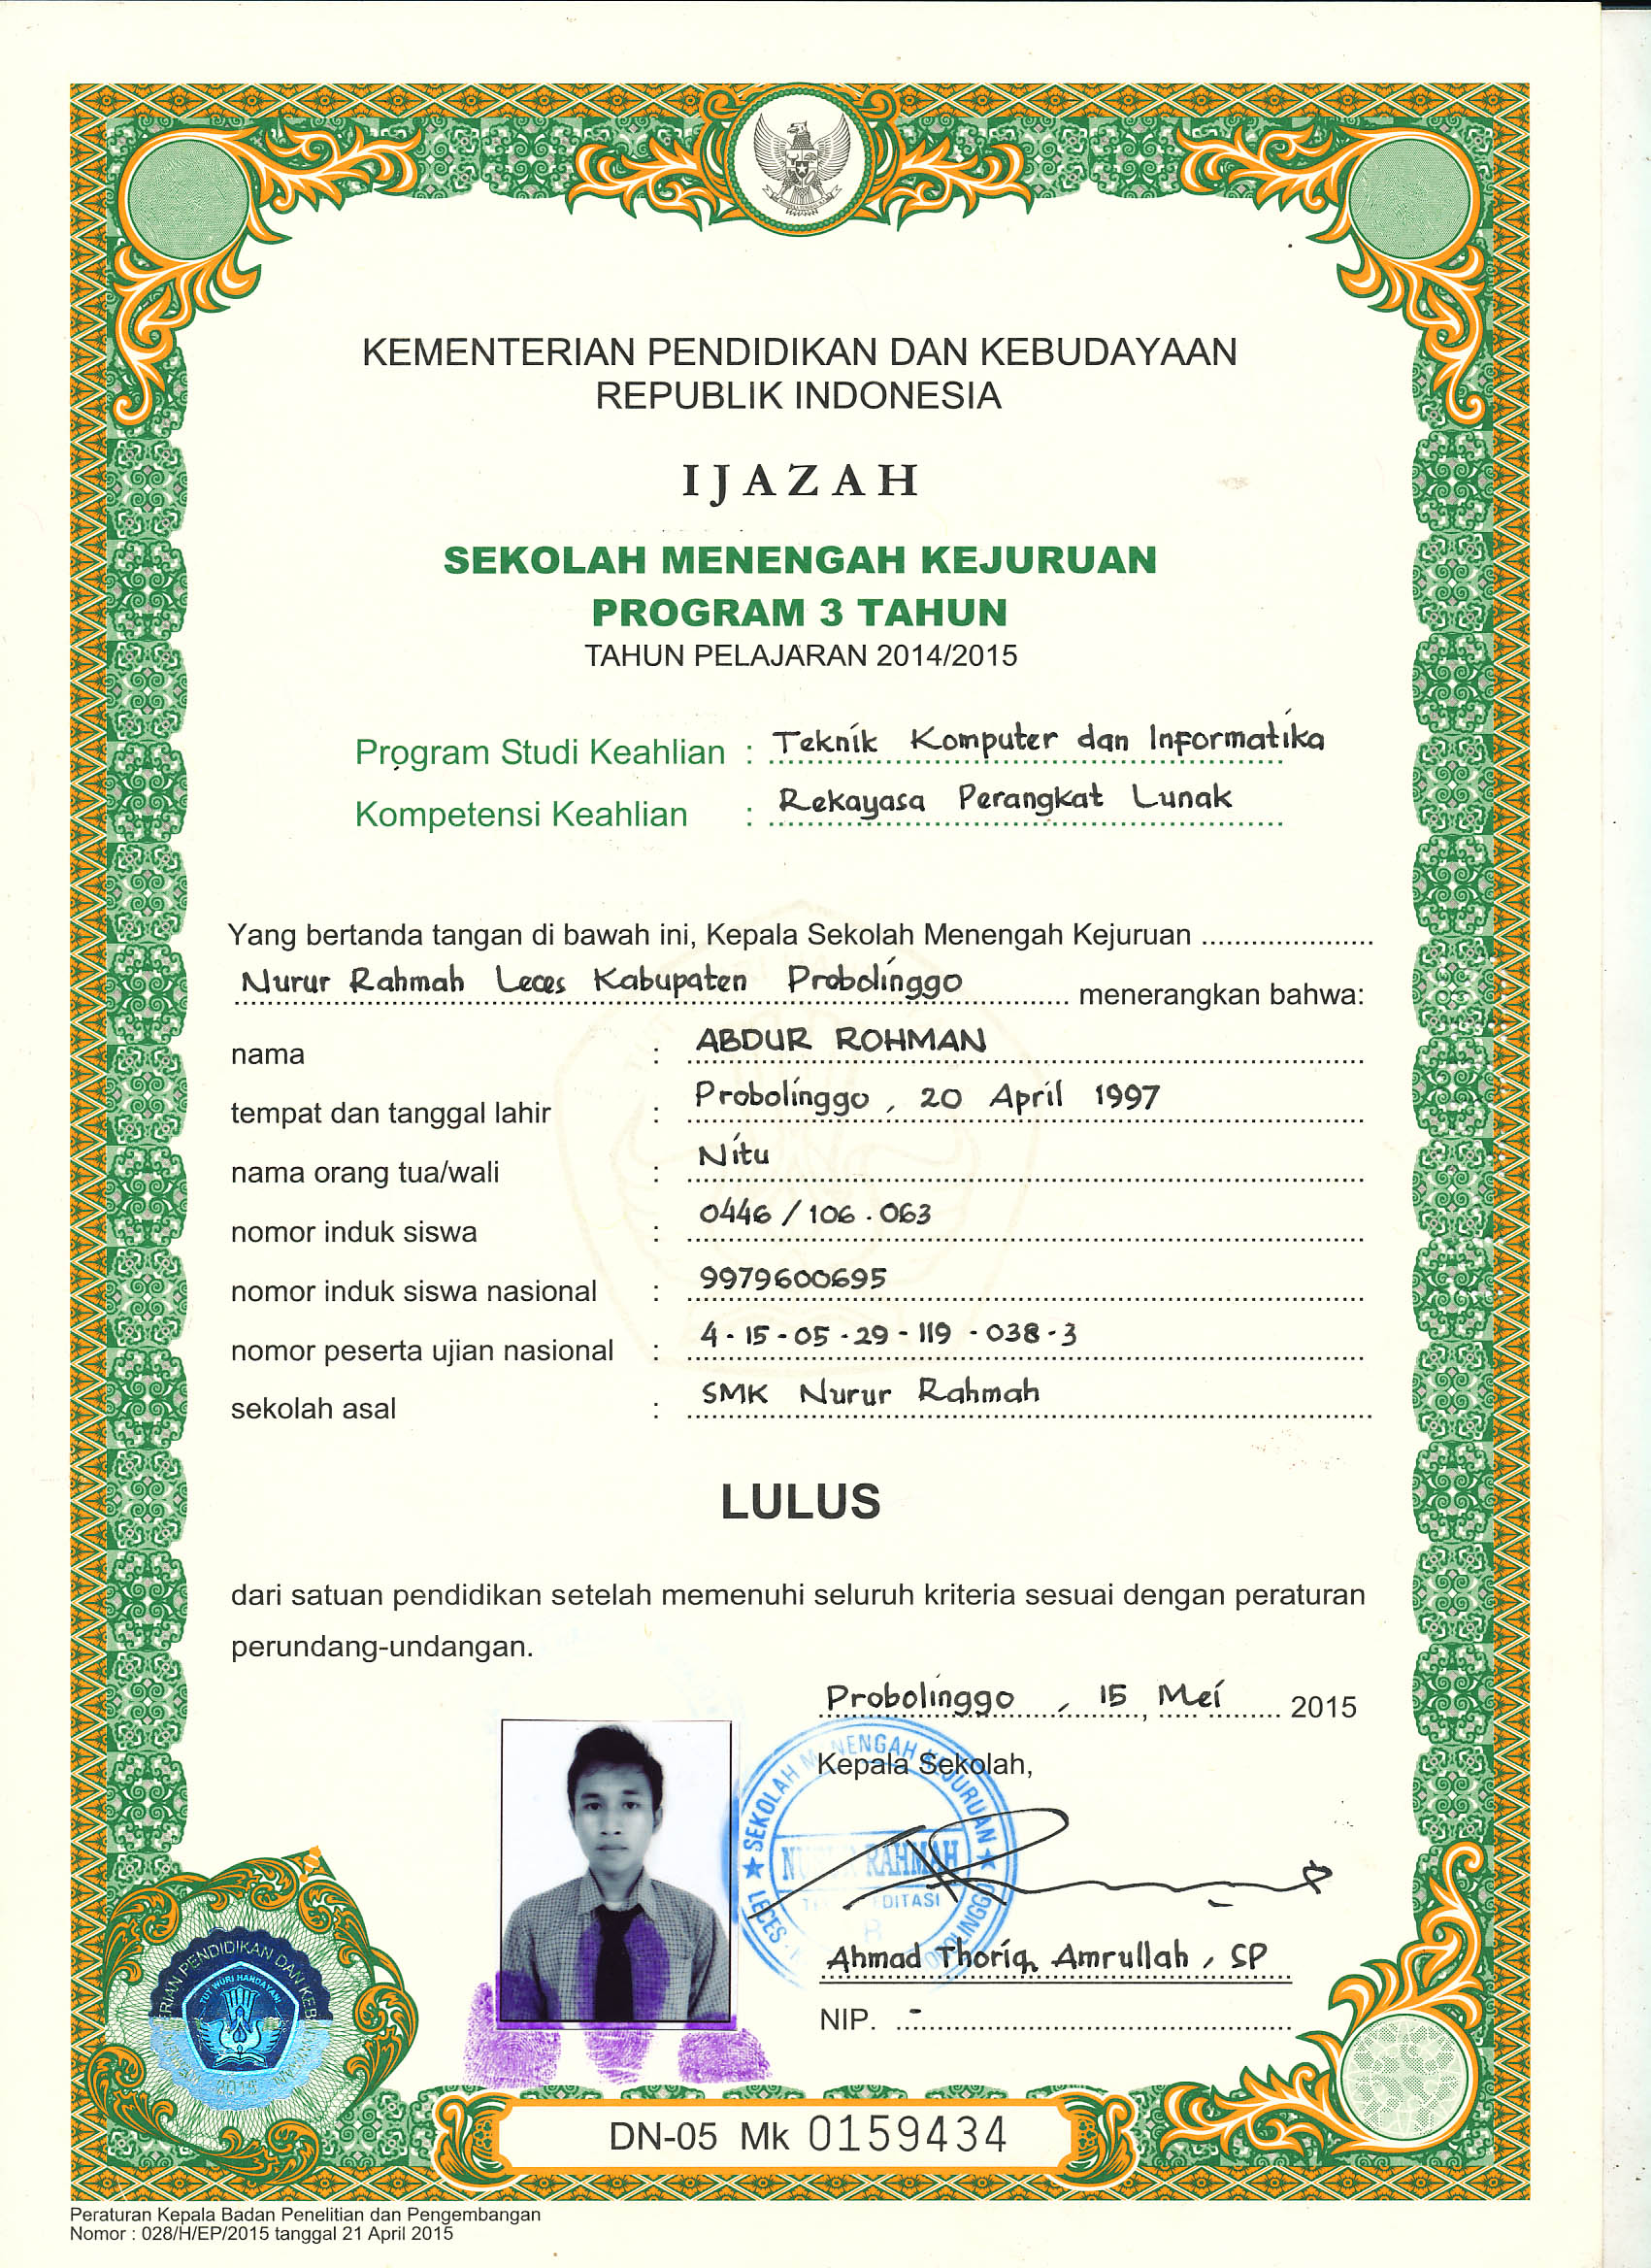 KEMENTERIAN PENDIDIKAN DAN KEBUDAYAAN
REPUBLIK INDONESIA
IJAZAH
SEKOLAH MENENGAH KEJURUAN
PROGRAM 3 TAHUN
TAHUN PELAJARAN 2014/2015
Program Studi Keahlian : Teknik Komputer dan Informatika
Kompetensi Keahlian : Rekayasa Perangkat Lunak
Yang bertanda tangan di bawah ini, Kepala Sekolah Menengah Kejuruan .....................
Nurur Rahmah Leces Kabupaten Probolinggo menerangkan bahwa:
nama : ABDUR ROHMAN
tempat dan tanggal lahir : Probolinggo, 20 April 1997
nama orang tua/wali : Nitu
nomor induk siswa : 0446 / 106 . 063
nomor induk siswa nasional : 9979600695
nomor peserta ujian nasional : 4 - 15 - 05 - 29 - 119 - 038 - 3
sekolah asal : SMK Nurur Rahmah
LULUS
dari satuan pendidikan setelah memenuhi seluruh kriteria sesuai dengan peraturan
perundang-undangan.
Probolinggo, 15, Mei 2015
Kepala Sekolah,
SEKOLAH MENENGAH KEJURUAN
RAHMAH
LECES
Ahmad Thoriq Amrullah, SP
NIP. -
TUT WURI HANDAYANI
DN-05 Mk 0159434
Peraturan Kepala Badan Penelitian dan Pengembangan
Nomor : 028/H/EP/2015 tanggal 21 April 2015